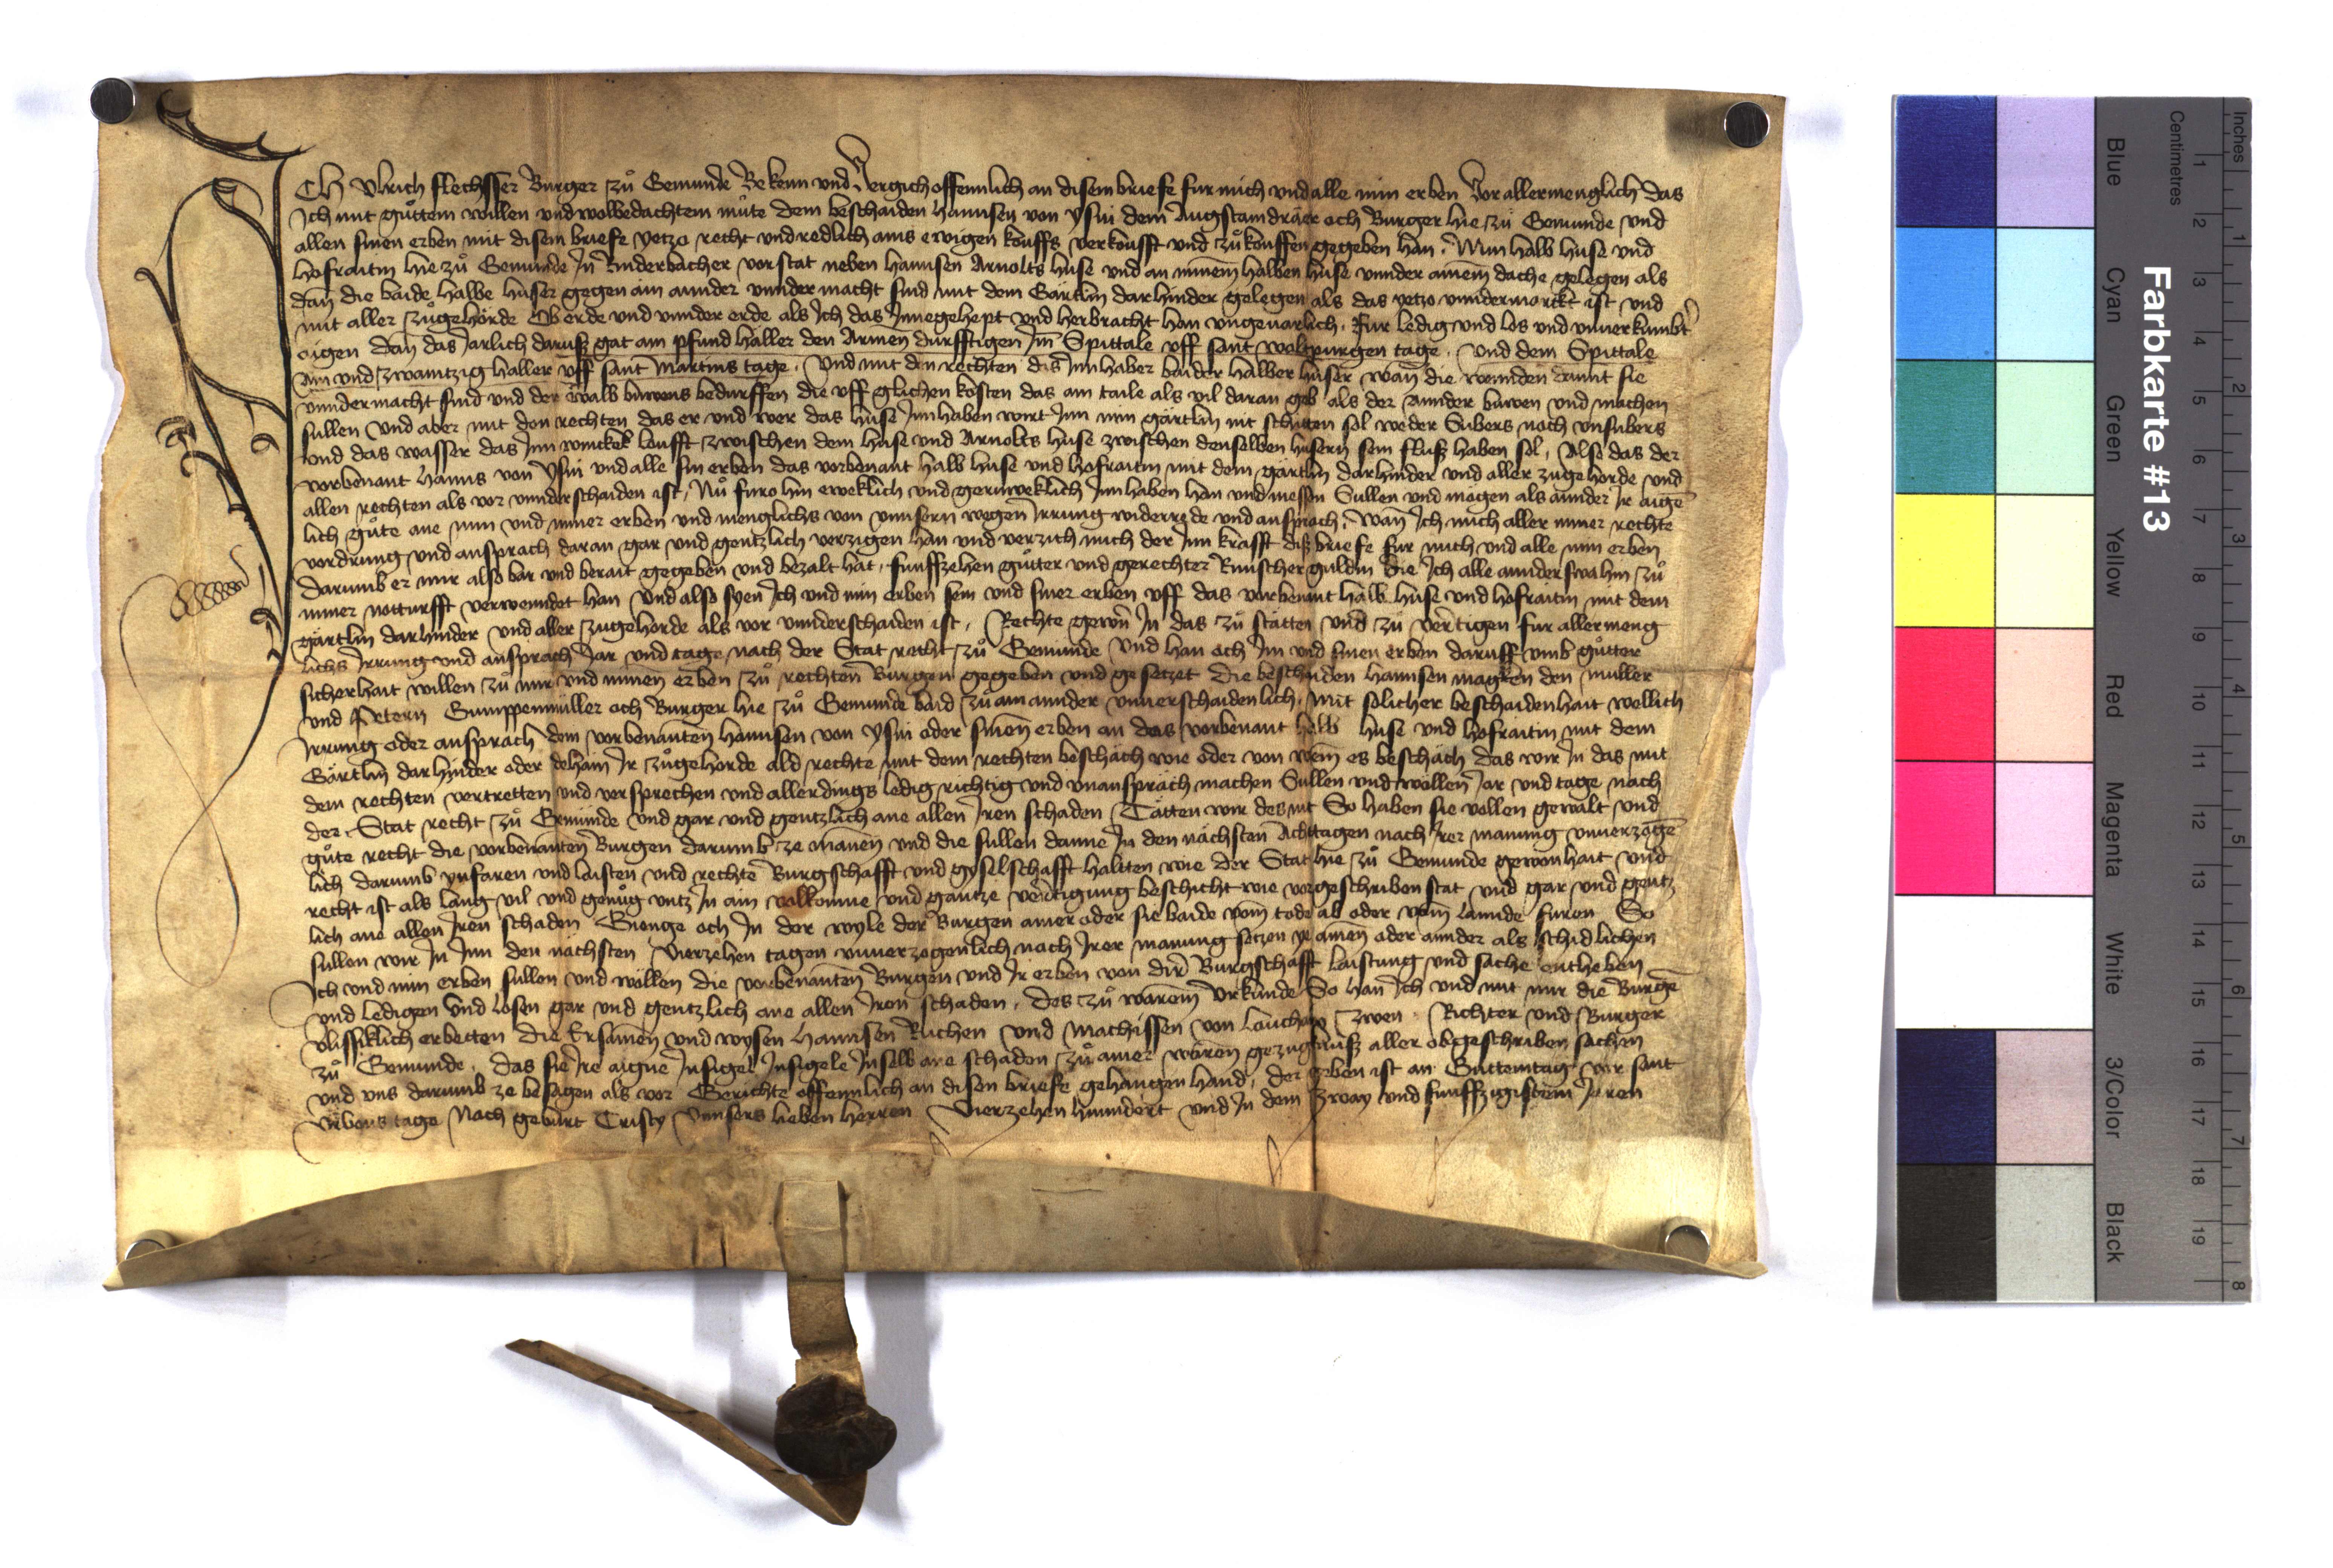 ICH Ulrich flechsser Burger zů Gemunde Bekenn und Vergich offennlich an disem briefe fur mich und alle min erben Vor allermenglich das
Ich mit gůttem willen und wolbedachtem můte dem beschaiden Hannsen von Ysni dem Augstaindräer och Burger hie zů Gemunde und
allen sinen erben mit disem briefe yetzo recht und redlich ains ewigen kouffs verkoufft und zů kouffen gegeben han. Min halb huse und
hofraitin hie zů Gemunde In Rinderbacher vorstat neben Hannsen Arnolts huse und an minem halben huse unnder ainem dache gelegen als
dañ die baide halbe huser gegen ain annder unndermacht sind mit dem Gärtlin darhinder gelegen als das yetzo unndermarckt ist und
mit aller zůgehörde Ob erde und unnder erde als Ich das Innegehept und herbracht han ungeuarlich. Fur ledig und los und unuerkumbt
aigen dañ das Jarlich daruß gat ain pfund haller den Armen durfftigen Im Spittale uff sant waltpurgen tage. Und dem Spittale
Ain und zwaintzig haller uff sant Martins tage. Und mit den rechten das Innhaber baider halber huser wañ die wennden damit sie
unndermacht sind und der walb buwens bedurffen die uff glichen kosten das ain taile als vil daran geb als der annder buwen und machen
sullen Und aber mit den rechten das er und wer das huse Innhaben wirt Inn min gärtlin nit schütten sol weder Subers noch unsubers
Und das wasser das Inn winckel loufft zwischen dem huse und Arnolts huse zwischen denselben husern sein fluß haben sol, Also das der
vorbenant Hanns von Ysni und alle sin erben das vorbenant halb huse und hofraitin mit dem gärtlin darhinder und aller zugehorde und
allen rechten als vor unnderschaiden ist, Nů furo hin eweklich und geruweklich Innhaben han und niessen Sullen und mogen als annder Ir aigē
lich gůte ane min und miner erben und menglichs von unnsern wegen Irrung widerrede und ansprach, wañ Ich mich aller miner rechte
vordrung und ansprach daran gar und gentzlich verzigen han und verzich mich der Inn krafft diß briefs fur mich und alle min erben
Darumb er mir also bar und berait gegeben und bezalt hat, funffzehen gůtter und gerechter Rinischer guldin die Ich alle annderswahin zů
miner notturfft verwenndet han Und also syen Ich und min erben sein und siner erben uff das vorbenant halb huse und hofraitin mit dem
gärtlin darhinder und aller zugehorde als vor unnderschaiden ist, Rechte gewern In das zů stätten und zů vertigen fur allermeng
lichs Irrung und ansprach Jar und tage nach der Stat recht zů Gemunde Und han och Im und sinen erben daruff umb gůtter
sicherhait willen zů mir und minen erben zů rechten Burgen gegeben und gesetzet die beschaiden Hannsen magken den muller
und Petern Gumppenmüller och Burger hie zů Gemunde baid zů ain annder unuerschaidenlich, Mit solicher beschaidenhait wellich
Irrung oder ansprach dem vorbenanten Hannsen von Ysni oder sinen erben an das vorbenant halb huse und hofraitin mit dem
Gärtlin darhinder oder dehain Ir zůgehorde ald rechte mit dem rechten beschäch wie oder von wem es beschäch das wir In das mit
dem rechten vertretten und versprechen und allerdings ledig richtig und unanspräch machen Sullen und wollen Jar und tage nach
der Stat recht zů Gemunde und gar und gentzlich ane allen Iren schaden Tätten wir des nit So haben sie vollen gewalt und
gůte recht die vorbenanten Burgen darumb ze manen und die sullen danne In den nächsten Achttagen nach Irer manung unuerzogē
lich darumb ynfaren und laisten und rechte Burgschafft und gyselschafft haltten wie der Stat hie zů Gemunde gewonhait und
recht ist als lang vil und genůg untz In ain volkomne und gantze vertigung beschicht wie vorgeschriben stat und gar und gentz
lich ane allen Iren schaden Gienge och In der wyle der Burgen ainer oder sie baide vom tode ab oder vom lannde furen So
sullen wir In Inn den nächsten vierzehen tagen unuerzogenlich nach Irer manung setzen ye ainen oder annder als schidlichen
Ich und min erben sullen und wollen die vorbenanten Burgen und Ir erben von dirr Burgschafft laistung und sache entheben
und ledigen und losen gar und gentzlich ane allen Iren schaden, Des zů warem Urkunde So han Ich und mit mir die Burgē
vlissiklich erbetten die Ersamen und wysen Hannsen Ruchen und Mathissen von Louchain zwen Richter und Burger
zů Gemunde, das sie Ire aigne Insigel Insigele Inselb ane schaden zů ainer waren gezugknuß aller obgeschriben sachen
und uns darumb ze besagen als vor Gerichte offennlich an disen briefe gehangen hand, der geben ist an Guttemtag vor sant
Urbans tage Nach geburt Cristy Unnsers lieben herren Vierzehen hunndert und In dem zway und funffzigistem Jaren
Farbkarte #13
Blue
Cyan
Green
Yellow
Red
Magenta
White
3/Color
Black
Centimetres
1 2 3 4 5 6 7 8 9 10 11 12 13 14 15 16 17 18 19
Inches
1 2 3 4 5 6 7 8